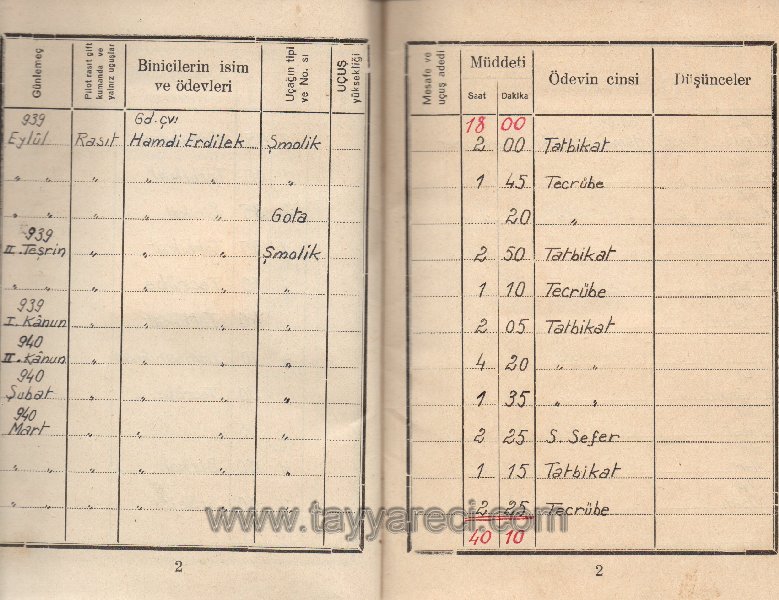 Günlemeç
Pilot rasıt çift kumanda ve yalnız uçuşlar
Binicilerin isim ve ödevleri
Uçağın tipi ve No. sı
UÇUŞ yüksekliği
939 Gd. çvı
Eylûl Rasıt Hamdi Erdilek Şmolik
〃 〃 〃 〃 〃
〃 〃 〃 〃 Gota
939
II. Teşrin 〃 〃 〃 Şmolik
〃 〃 〃 〃 〃
939
I. Kânun 〃 〃 〃 〃
940
II. Kânun 〃 〃 〃 〃
940
Şubat 〃 〃 〃 〃
940
Mart 〃 〃 〃 〃
〃 〃 〃 〃 〃
〃 〃 〃 〃 〃
2
Mesafe ve uçuş adedi
Müddeti
Saat Dakika
Ödevin cinsi
Düşünceler
18 00
2 00 Tatbikat
1 45 Tecrübe
20 〃
2 50 Tatbikat
1 10 Tecrübe
2 05 Tatbikat
4 20 〃 〃
1 35 〃 〃
2 25 S. Sefer
1 15 Tatbikat
2 25 Tecrübe
40 10
2
www.tayyareci.com